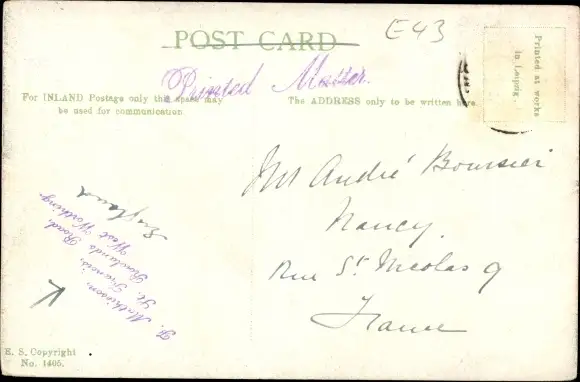 POST CARD
E43
Printed Matter.
Printed at works
in Leipzig.
For INLAND Postage only this space may
be used for communication
The ADDRESS only to be written here
Mr André Boursier
Nancy.
Rue St. Nicolas 9
France
P. Mathieson,
St. Francis,
Rowlands Road,
West Worthing
England
E. S. Copyright
No. 1405.